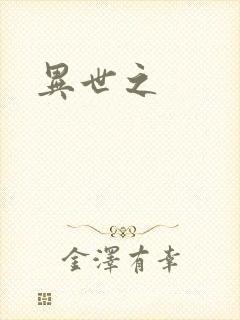 異世之
金澤有幸